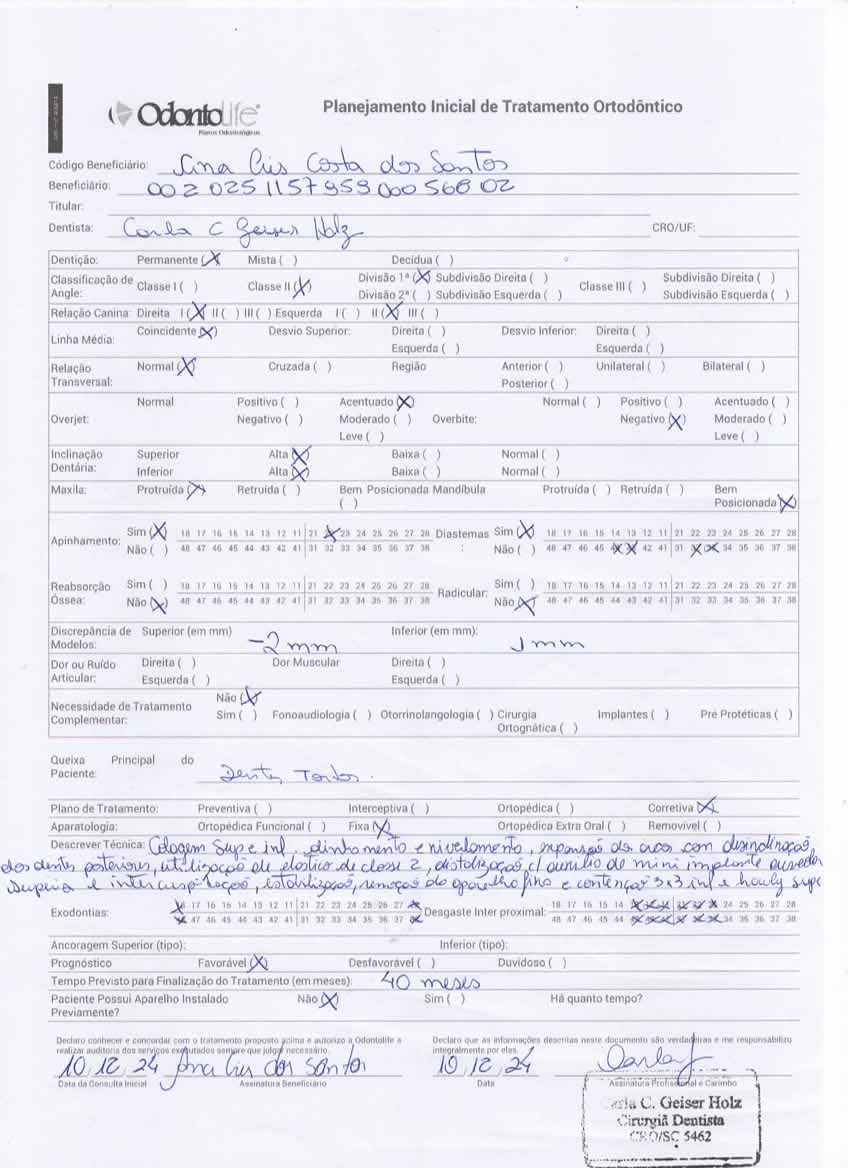 OdontoLife
Planos Odontológicos
Planejamento Inicial de Tratamento Ortodôntico
Código Beneficiário: Ana Cris Costa dos Santos
Beneficiário: 002 025 1157 959 000 568 02
Titular:
Dentista: Carla C Geiser Holz CRO/UF:
Dentição: Permanente (X) Mista ( ) Decídua ( )
Classificação de Angle: Classe I ( ) Classe II (X) Divisão 1ª (X) Subdivisão Direita ( ) Classe III ( ) Subdivisão Direita ( )
Divisão 2ª ( ) Subdivisão Esquerda ( ) Subdivisão Esquerda ( )
Relação Canina: Direita I (X) II ( ) III ( ) Esquerda I ( ) II (X) III ( )
Linha Média: Coincidente (X) Desvio Superior: Direita ( ) Desvio Inferior: Direita ( )
Esquerda ( ) Esquerda ( )
Relação Transversal: Normal (X) Cruzada ( ) Região Anterior ( ) Unilateral ( ) Bilateral ( )
Posterior ( )
Normal Positivo ( ) Acentuado (X) Normal ( ) Positivo ( ) Acentuado ( )
Overjet: Negativo ( ) Moderado ( ) Overbite: Negativo (X) Moderado ( )
Leve ( ) Leve ( )
Inclinação Superior Alta (X) Baixa ( ) Normal ( )
Dentária: Inferior Alta (X) Baixa ( ) Normal ( )
Maxila: Protruída (X) Retruída ( ) Bem Posicionada ( ) Mandíbula Protruída ( ) Retruída ( ) Bem Posicionada (X)
Apinhamento: Sim (X) 18 17 16 15 14 13 12 11 21 X 23 24 25 26 27 28 Diastemas : Sim (X) 18 17 16 15 14 13 12 11 21 22 23 24 25 26 27 28
Não ( ) 48 47 46 45 44 43 42 41 31 32 33 34 35 36 37 38 Não ( ) 48 47 46 45 X X 42 41 31 X X 34 35 36 37 38
Reabsorção Óssea: Sim ( ) 18 17 16 15 14 13 12 11 21 22 23 24 25 26 27 28 Radicular: Sim ( ) 18 17 16 15 14 13 12 11 21 22 23 24 25 26 27 28
Não (X) 48 47 46 45 44 43 42 41 31 32 33 34 35 36 37 38 Não (X) 48 47 46 45 44 43 42 41 31 32 33 34 35 36 37 38
Discrepância de Modelos: Superior (em mm) -2 mm Inferior (em mm): 1 mm
Dor ou Ruído Articular: Direita ( ) Dor Muscular Direita ( )
Esquerda ( ) Esquerda ( )
Necessidade de Tratamento Complementar: Não (X)
Sim ( ) Fonoaudiologia ( ) Otorrinolangologia ( ) Cirurgia Ortognática ( ) Implantes ( ) Pré Protéticas ( )
Queixa Principal do Paciente: Dentes Tortos.
Plano de Tratamento: Preventiva ( ) Interceptiva ( ) Ortopédica ( ) Corretiva (X)
Aparatologia: Ortopédica Funcional ( ) Fixa (X) Ortopédica Extra Oral ( ) Removível ( )
Descrever Técnica: Colagem Sup e inf, alinhamento e nivelamento, expansão do arco com desinclinação
dos dentes posteriores, utilização de elástico de classe 2, distalização c/ auxílio de mini implante
superior e intercuspidação, estabilização, remoção do aparelho fixo e contenção 3x3 inf e hawly supe
Exodontias: X 17 16 15 14 13 12 11 21 22 23 24 25 26 27 X Desgaste Inter proximal: 18 17 16 15 14 X X X X X X 24 25 26 27 28
X 47 46 45 44 43 42 41 31 32 33 34 35 36 37 X 48 47 46 45 44 X X X X X X 34 35 36 37 38
Ancoragem Superior (tipo): Inferior (tipo):
Prognóstico Favorável (X) Desfavorável ( ) Duvidoso ( )
Tempo Previsto para Finalização do Tratamento (em meses): 40 meses
Paciente Possui Aparelho Instalado Previamente? Não (X) Sim ( ) Há quanto tempo?
Declaro conhecer e concordar com o tratamento proposto acima e autorizo a Odontolife a realizar auditoria dos serviços executados sempre que julgar necessário.
Declaro que as informações descritas neste documento são verdadeiras e me responsabilizo integralmente por elas.
10/12/24 Ana Cris dos Santos 10/12/24 Carla
Data da Consulta Inicial Assinatura Beneficiário Data Assinatura Profissional e Carimbo
Carla C. Geiser Holz
Cirurgiã Dentista
CRO/SC 5462